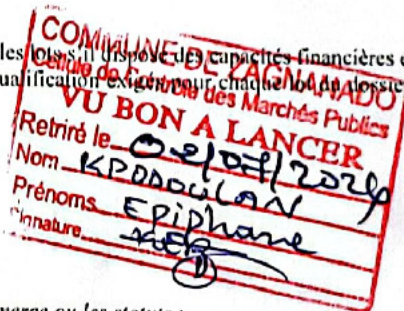 les lots s'il dispose des capacités financières
qualification exigés pour chaque lot du dossier
COMMUNE DE ZAGNANADO
Cellule de Contrôle des Marchés Publics
VU BON A LANCER
Retriré le 02/07/2024
Nom KPODOULAN
Prénoms EPiphane
ou les statuts